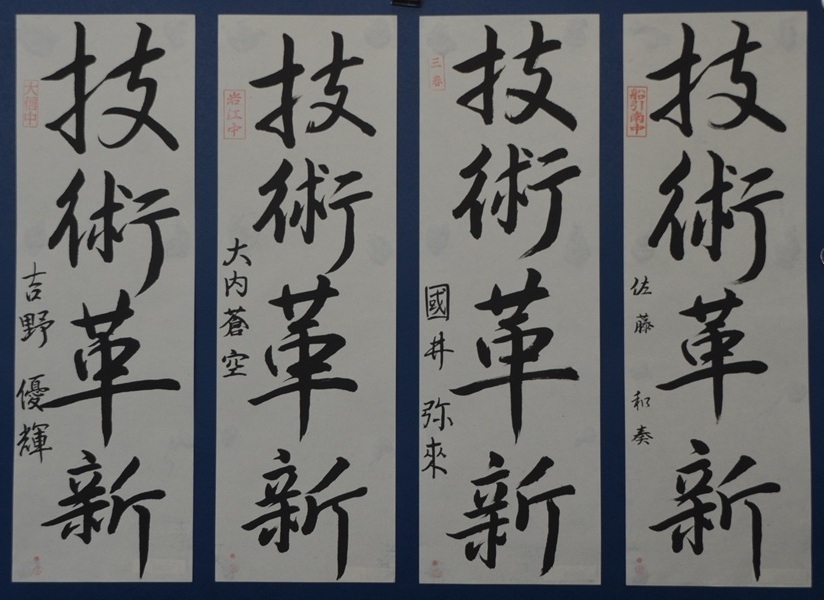 技術革新
船引南中
佐藤和奏
技術革新
三春
國井弥來
技術革新
岩江中
大内蒼空
技術革新
吉野優輝